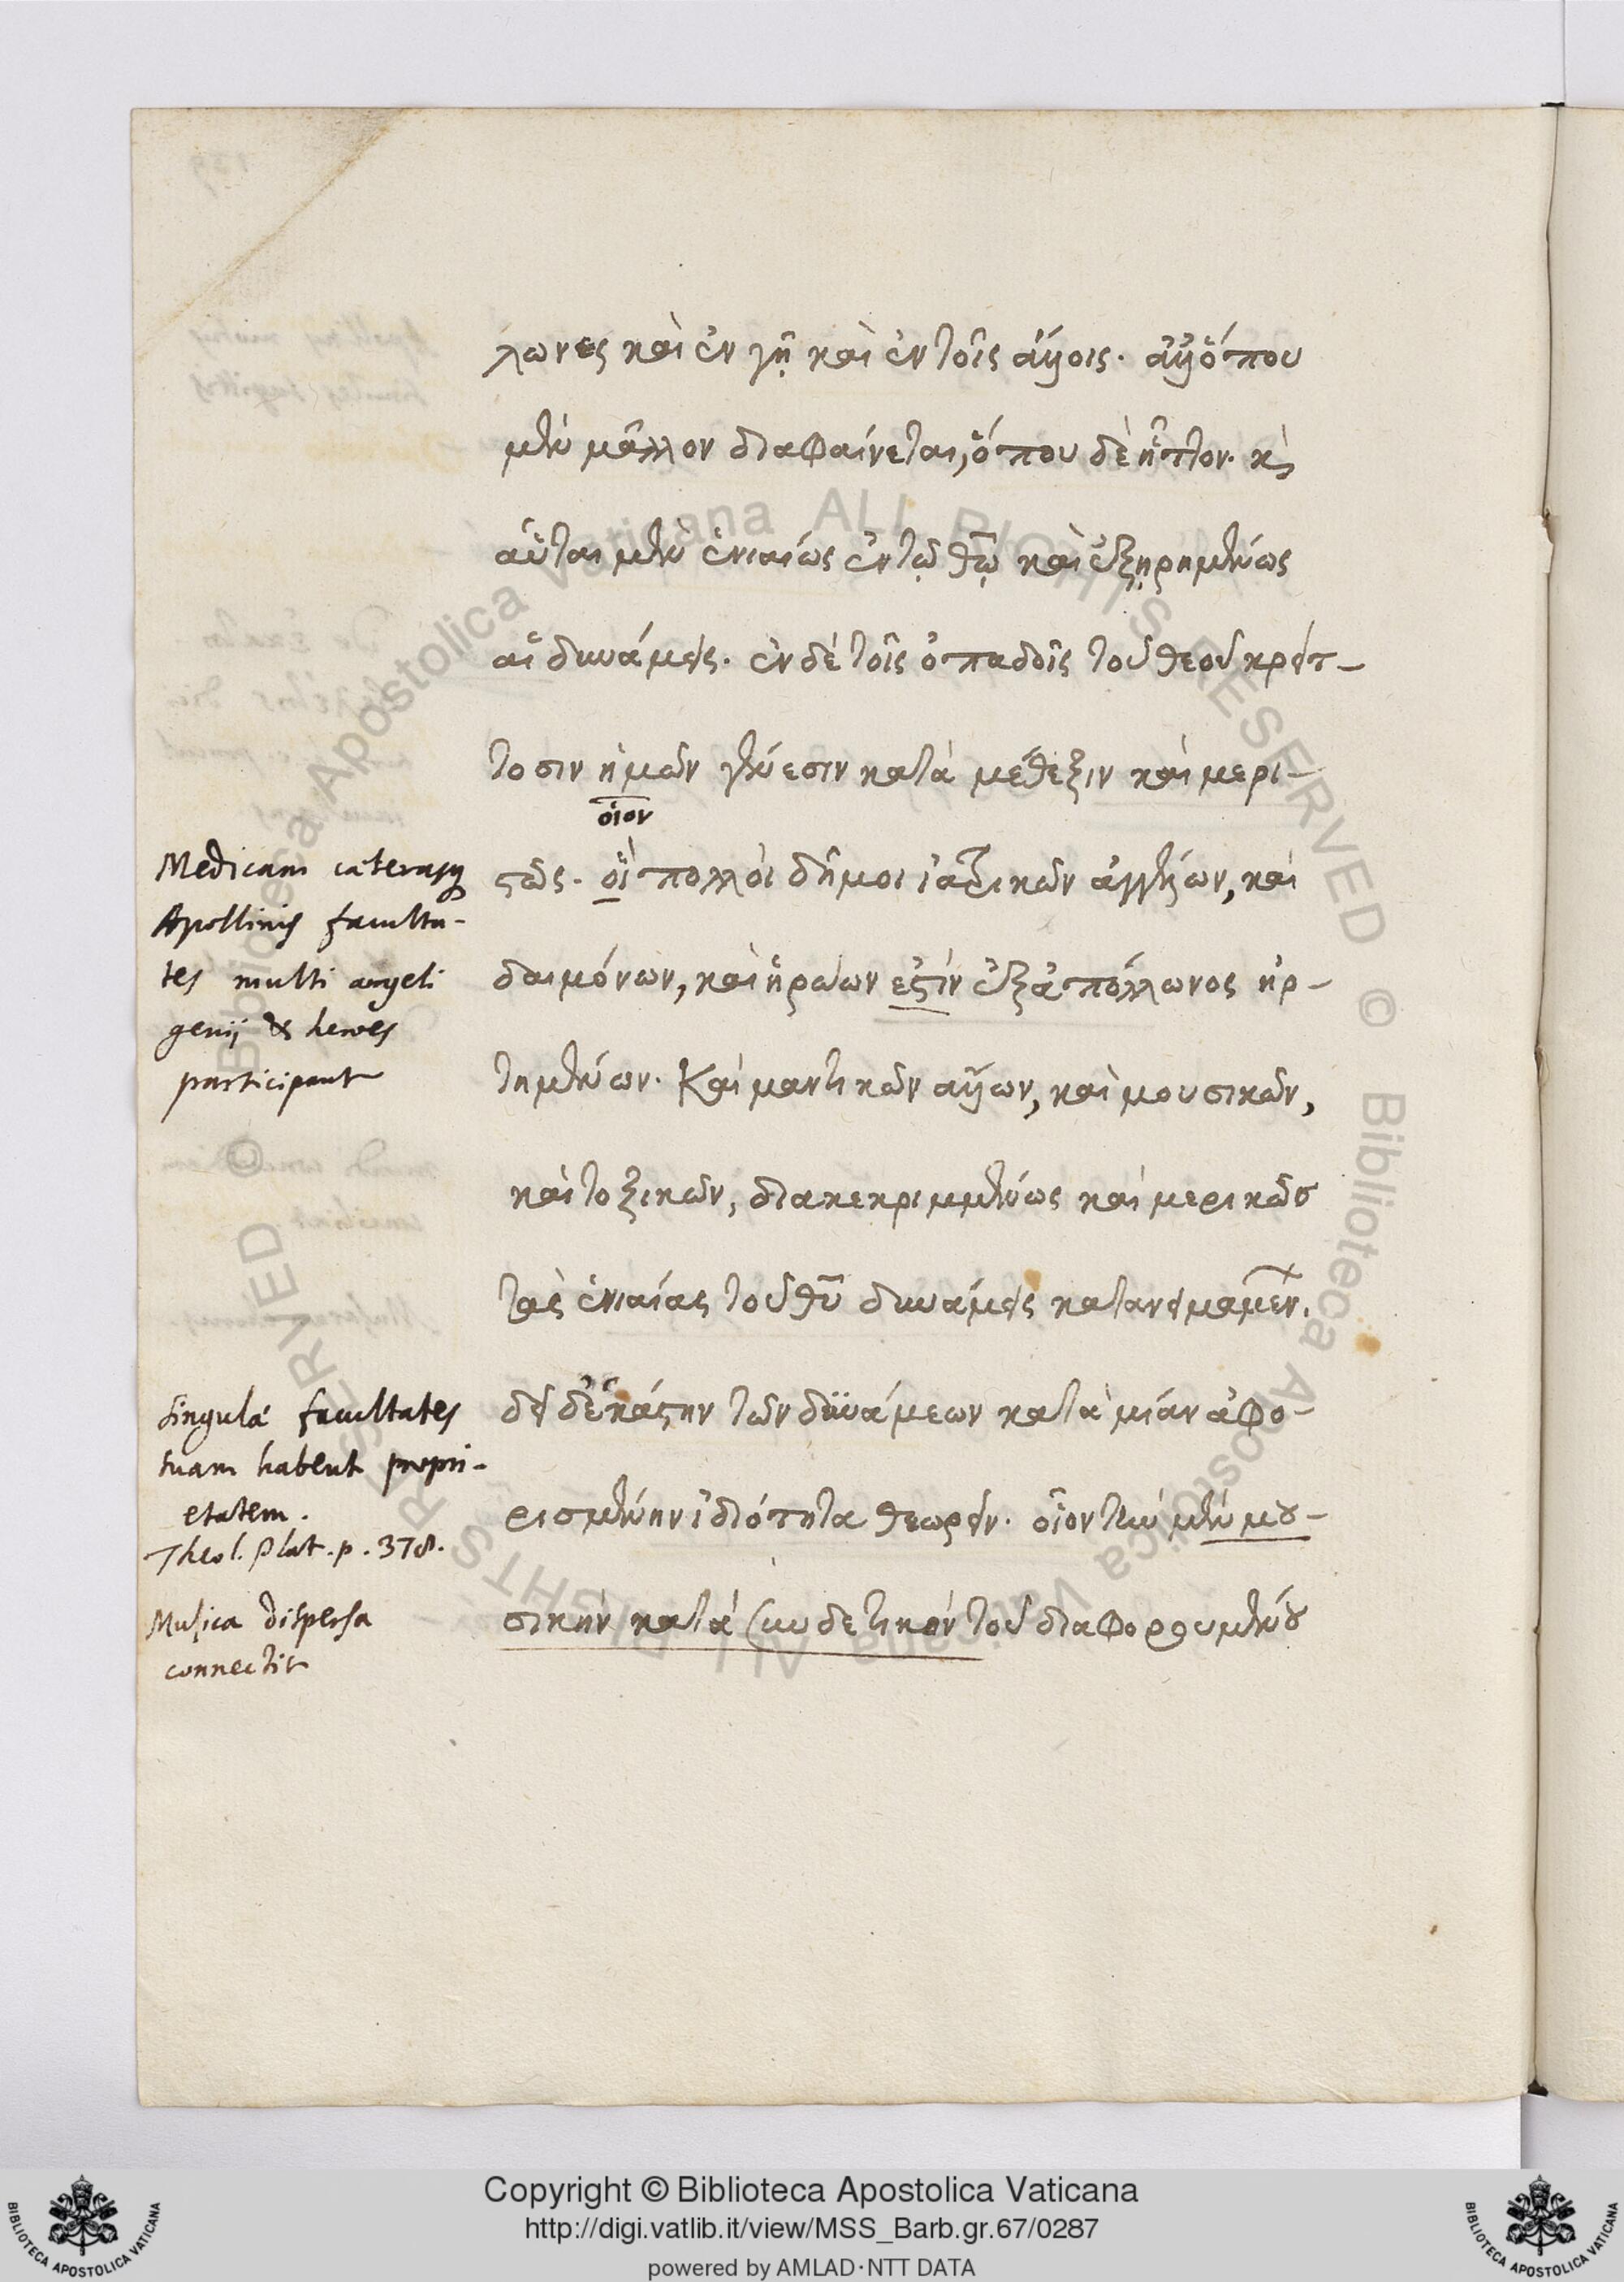 λωνες καὶ ἐν γῇ καὶ ἐν τοῖς ἄλλοις. ἀλλ' ὅπου
μὲν μᾶλλον διαφαίνεται, ὅπου δὲ ἧττον. κὶ
αὗται μὲν ἑνιαίως ἐν τῷ θῷ καὶ ἐξῃρημένως
αἱ δυνάμεις. ἐν δὲ τοῖς ὀπαδοῖς τοῦ θεοῦ κρείτ-
τοσιν ἡμῶν γένεσιν κατὰ μέθεξιν καὶ μερι-
οἷον
στῶς. οἱ πολλοὶ δῆμοι ἰατρικῶν ἀγγέλων, καὶ
δαιμόνων, καὶ ἡρώων εἰσὶν ἐξ ἀπόλλωνος ἠρ-
τημένων. Καὶ μαντικῶν ἄλλων, καὶ μουσικῶν,
καὶ τοξικῶν, διακεκριμμένως καὶ μερικῶσ
τὰς ἑνιαίας τοῦ θῦ δυνάμεις κατανειμαμέν.
δεῖ δὲ ἑκάστην τῶν δυνάμεων κατὰ μίαν ἀφο-
ρισμένην ἰδιότητα θεωρεῖν. οἷον τὴν μὲν μου-
σικὴν κατὰ συνδετικὴν τοῦ διαφορουμένου
Medicam caterasq
Apollinis faculta-
tes multi angeli
genij & heroes
participant
singula facultates
suam habent propri-
etatem.
Theol. Plat. p. 378.
Musica dispersa
connectit
Biblioteca Apostolica Vaticana ALL RIGHTS RESERVED ©
Biblioteca Apostolica Vaticana ALL RIGHTS RESERVED ©
Copyright © Biblioteca Apostolica Vaticana
http://digi.vatlib.it/view/MSS_Barb.gr.67/0287
powered by AMLAD·NTT DATA
BIBLIOTECA APOSTOLICA VATICANA
BIBLIOTECA APOSTOLICA VATICANA